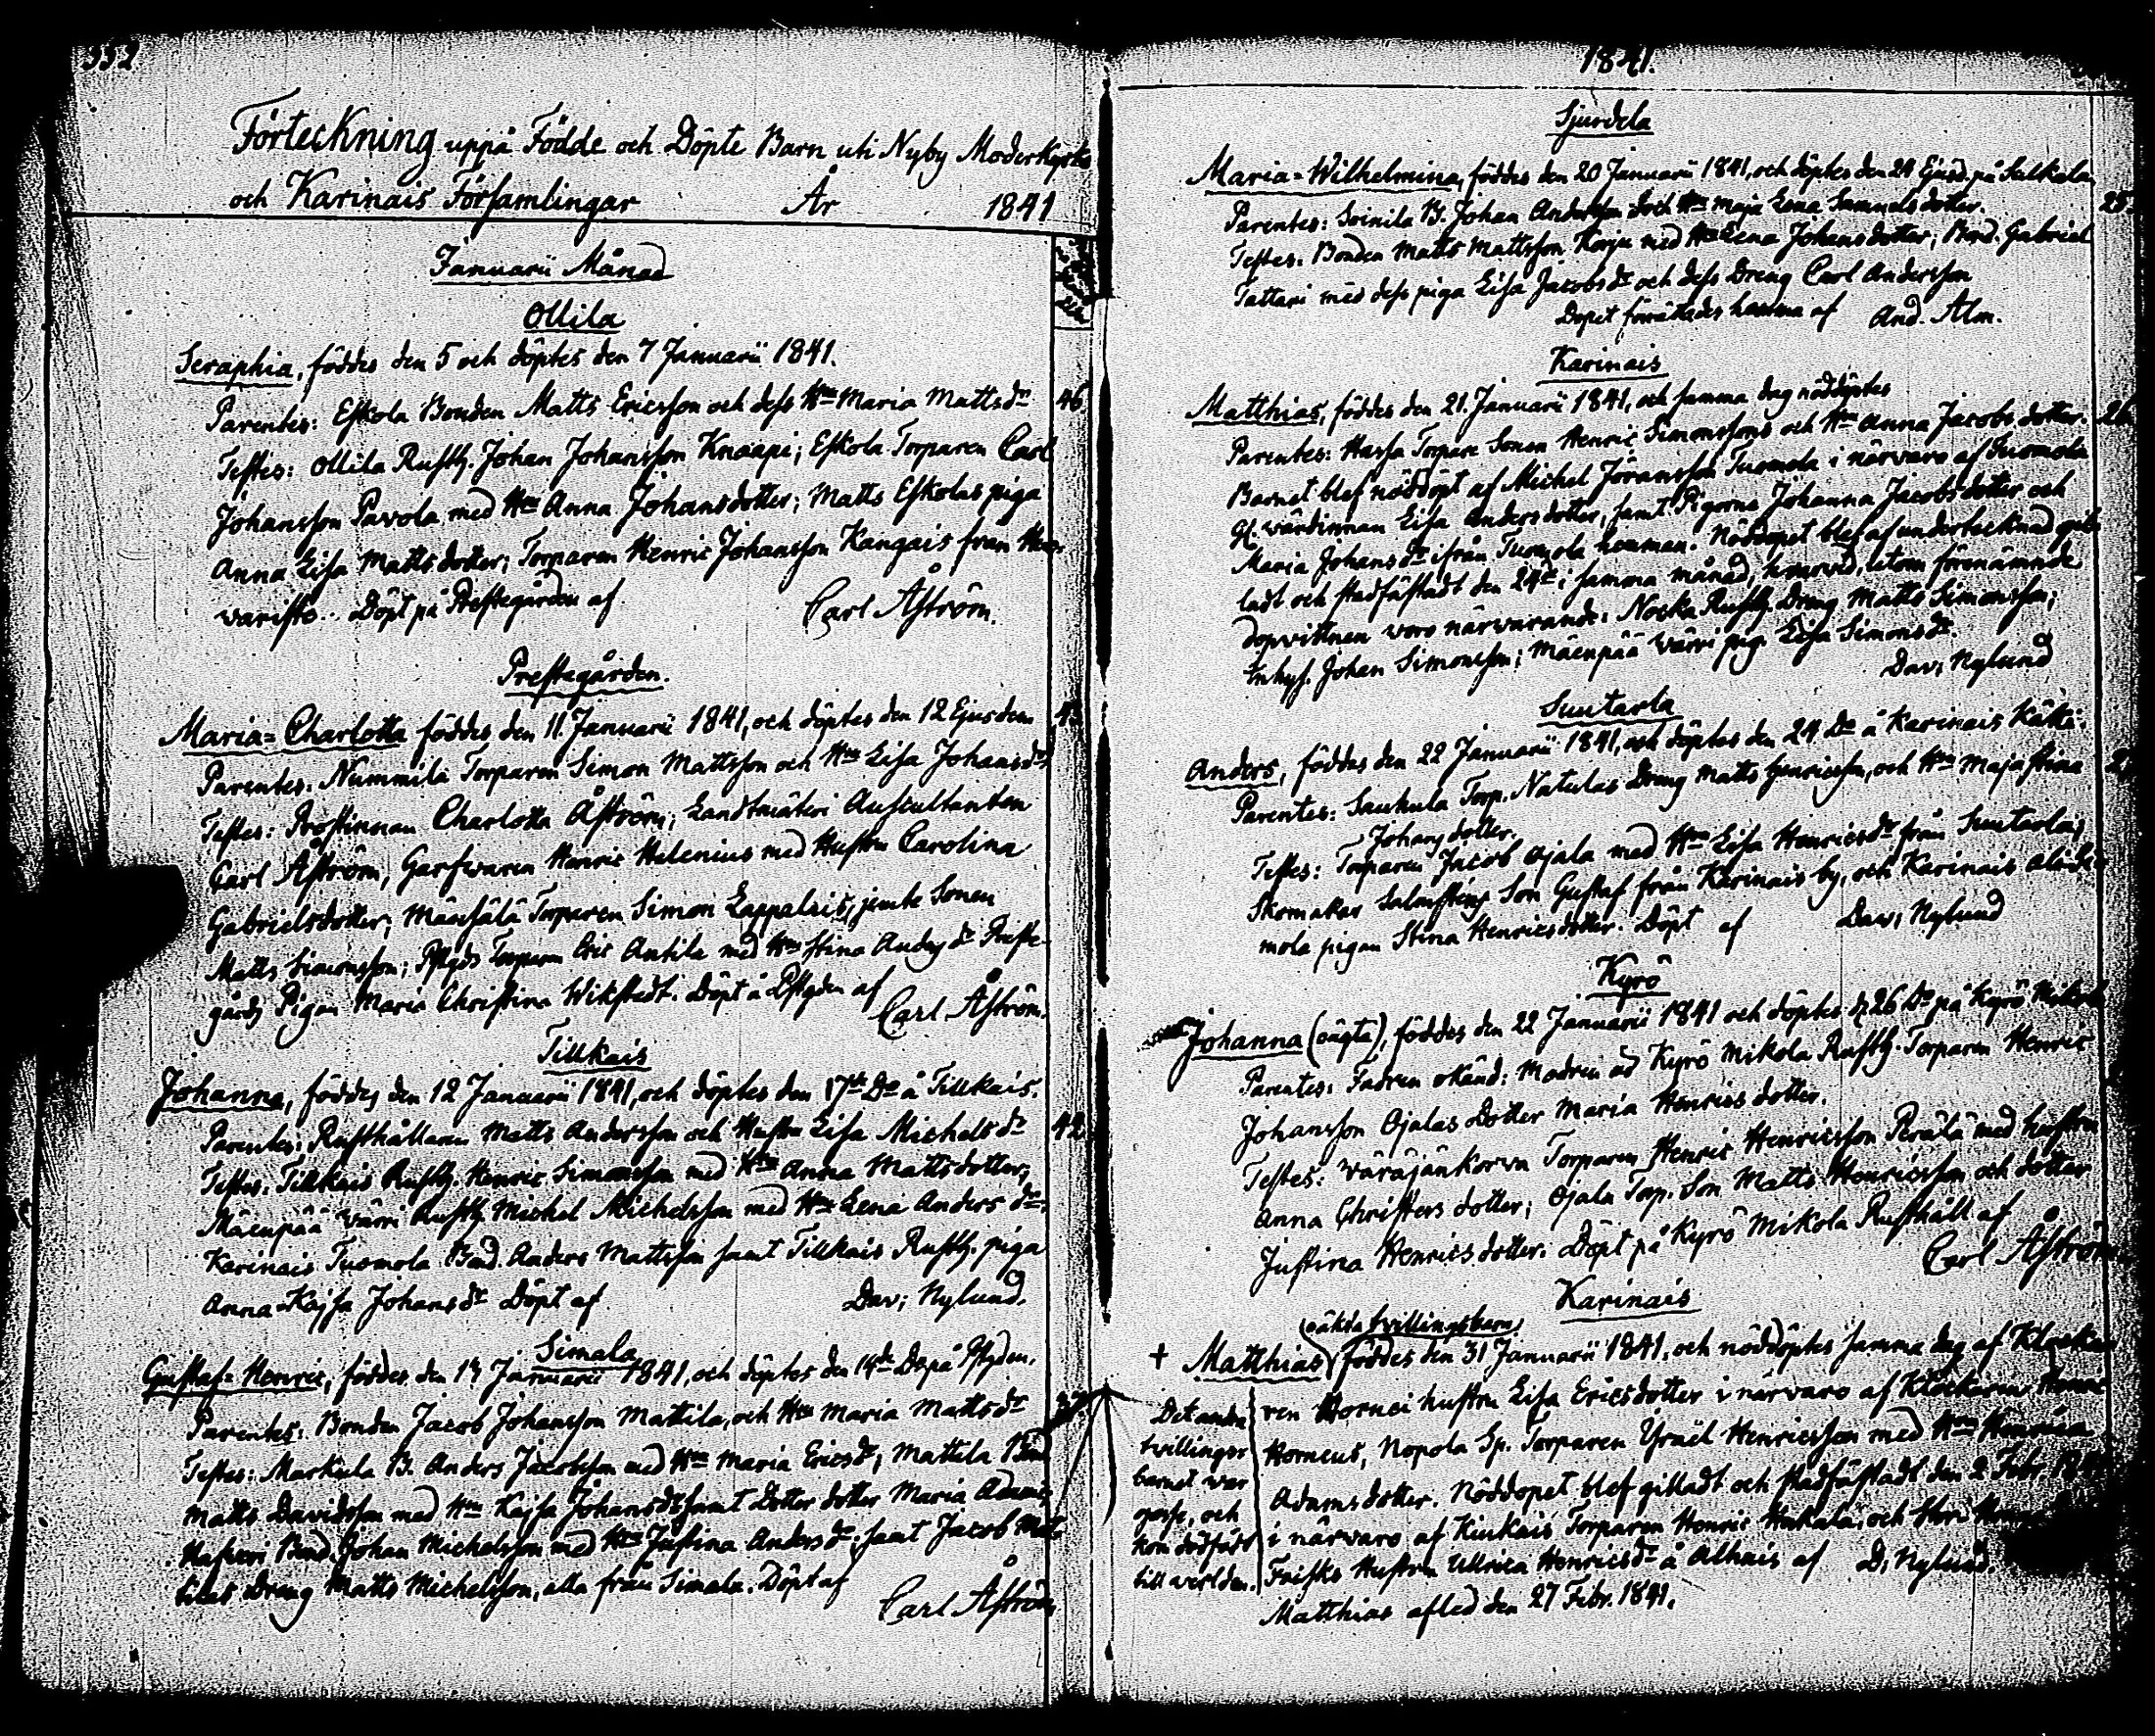 332
Förteckning uppå Födde och Döpte Barn uti Nyby Moderkyrko
och Karinais Församlingar År 1841
Januarii Månad
Ollila
Seraphia, föddes den 5 och döptes den 7 Januarii 1841.
Parentes: Eskola Bonden Matts Ericsson och dess Hu Maria Mattsdr 46
Testes: Ollila Rusth. Johan Johansson Knaapi; Eskola Torparen Carl
Johansson Pavola med Hu Anna Johansdotter; Matts Eskolas piga
Anna Lisa Mattsdotter; Torparen Henric Johansson Kangais från
varisto. Döpt på Prestegården af Carl Åström.
Prestegården.
Maria=Charlotta föddes den 11. Januarii 1841, och döptes den 12 Ejusdem
Parentes: Nummila Torparen Simon Mattsson och Hu Lisa Johansdr
Testes: Prostinnan Charlotta Åström; Landtmäteri Auscultanten
Carl Åström, Garfvaren Henric Helenius med Hustru Carolina
Gabrielsdotter; Mäensälä Torparen Simon Lappalais, jemte Sonen
Matts Simonsson; Pstgds Torparen Eric Antila med Hu Stina Andsdr Preste-
gårds Pigan Maria Christina Wikstedt. Döpt å Pstgden af
Carl Åström.
Tillkais
Johanna, föddes den 12 Januarii 1841, och döptes den 17de Do å Tillkais.
Parentes: Rusthållaren Matts Andersson och Hustru Lisa Michelsdr 42
Testes: Tillkais Rusth. Henric Simonsson med Hu Anna Mattsdotter,
Mäenpää Värri Rusth. Michel Michelsson med Hu Lena Andersdr.
Karinais Tuomola Bond. Anders Mattsson samt Tillkais Rusth. piga
Anna Kajsa Johansdr Döpt af Dav; Nylund.
Simala
Gustaf=Henric, föddes den 13 Januarii 1841, och döptes den 14de Do på Pstgden.
Parentes: Bonden Jacob Johansson Mattila, och Hu Maria Mattsdr 37
Testes: Markula B. Anders Jacobsson med Hu Maria Ericsdr; Mattila Bond
Matts Davidsson med Hu Kajsa Johansdr samt Dotter dotter Maria Adams
Bond. Johan Michelsson med Hu Justina Andersdr. samt Jacob Mat-
tilas Dreng Matts Michelsson, alla från Simala. Döpt af
Carl Åström
1841.
Sjurdela
Maria=Wilhelmina, föddes den 20 Januarii 1841, och döptes den 24 Ejusd. på
Parentes: Soinila B. Johan Andersson och Hu Maja Lena Samuelsdotter. 25
Testes: Bonden Matts Mattsson Korju med Hu Lena Johansdotter; Bond. Gabriel
Tattari med dess piga Lisa Jacobsdr och dess Dreng Carl Andersson
Dopet förrättades hemma af And. Alm.
Karinais
Matthias, föddes den 21. Januarii 1841, och samma dag nöddöptes
Parentes: Hassa Torpare Sonen Henric Simonssons och Hu Anna Jacobs dotter. 26
Barnet blef nöddöpt af Michel Jöransson Tuomola i närvaro af Tuomola
Gl. värdinnan Lisa Andersdotter, samt Pigorna Johanna Jacobsdotter och
Maria Johansdr ifrån Tuomola hemman. Nöddopet blef af undertecknad gil-
ladt och stadfästadt den 24de i samma månad, hvarvid, utom förenämnde
dopvittnen voro närvarande: Nocka Rusth. Dreng Matts Simonsson;
Inhys. Johan Simonsson; Mäenpää Värri pig. Lisa Simonsdr.
Dav; Nylund
Suutarla
Anders, föddes den 22 Januarii 1841, och döptes den 24 Do å Karinais
Parentes: Saukula Torp. Natulas Dreng Matts Henricsson, och Hu Maja Stina
Johansdotter.
Testes: Torparen Jacob Ojala med Hu Lisa Henricsdr från Suutarla;
Skomakar Salonstens Son Gustaf från Karinais by, och Karinais
mola pigan Stina Henricsdotter. Döpt af Dav; Nylund
Kyrö
Johanna (oägta), föddes den 22 Januarii 1841 och döptes d 26 Do på Kyrö Mikola
Parentes: Fadren okänd: Modren äd Kyrö Mikola Rusth. Torparen Henric
Johansson Ojalas Dotter Maria Henrics dotter.
Testes: Väräjänkorva Torparen Henric Henricsson Perälä med hustru
Anna Christers dotter; Ojala Torp. Son Matts Henricsson och dotter
Justina Henricsdotter. Döpt på Kyrö Mikola Rusthåll af
Carl Åström
Karinais
(oäkta tvillingsbarn)
† Matthias föddes den 31 Januarii 1841, och nöddöptes samma dag af Klocka
ren Hornei hustru Lisa Ericsdotter i närvaro af Klockaren
Horneus, Nopola Sp. Torparen Israël Henricsson med Hu
Adamsdotter. Nöddopet blef gilladt och stadfästadt den 2 Febr.
i närvaro af Kiukais Torparen Henric Hakala, och
Hustru Ullrica Henricsdr å Alhais af D; Nylund.
Matthias afled den 27 Febr. 1841.
Det andra
tvillings
barnet war
gosse, och
kom dödfödt
till verlden.